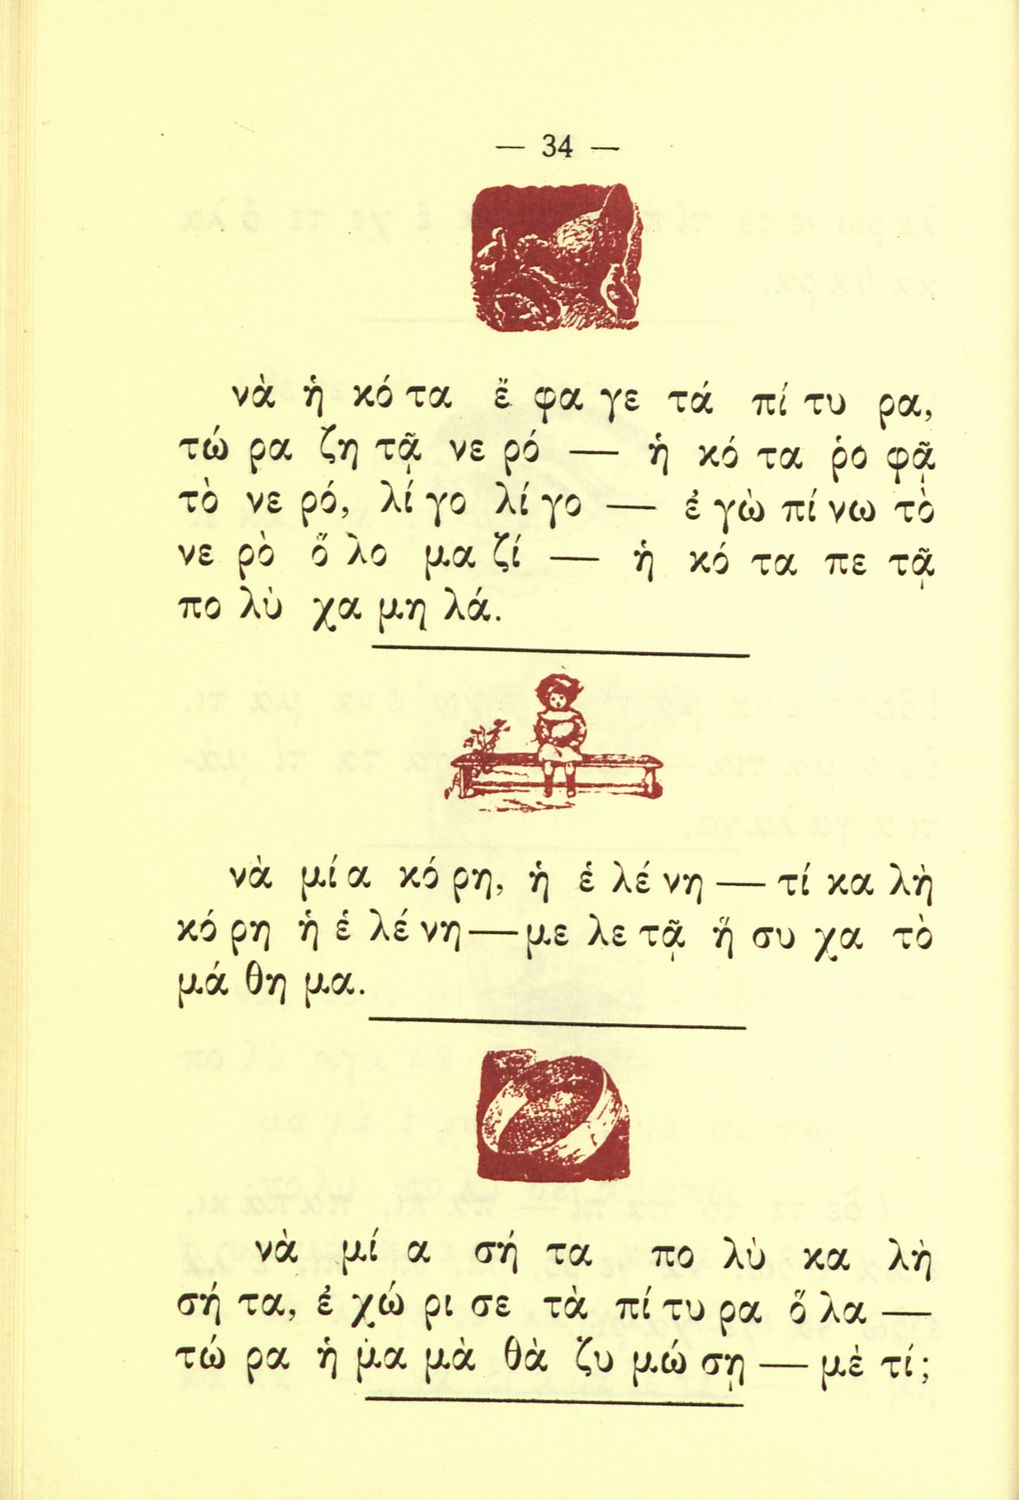 — 34 —
νὰ ἡ κό τα ἔ φα γε τά πί τυ ρα,
τώ ρα ζη τᾷ νε ρό — ἡ κό τα ῥο φᾷ
τὸ νε ρό, λί γο λί γο — ἐ γὼ πί νω τὸ
νε ρὸ ὅ λο μα ζί — ἡ κό τα πε τᾷ
πο λὺ χα μη λά.
νὰ μί α κό ρη, ἡ ἑ λέ νη — τί κα λὴ
κό ρη ἡ ἑ λέ νη — με λε τᾷ ἥ συ χα τὸ
μά θη μα.
νὰ μί α σή τα πο λὺ κα λὴ
σή τα, ἐ χώ ρι σε τὰ πί τυ ρα ὅ λα —
τώ ρα ἡ μα μὰ θὰ ζυ μώ σῃ — μὲ τί;